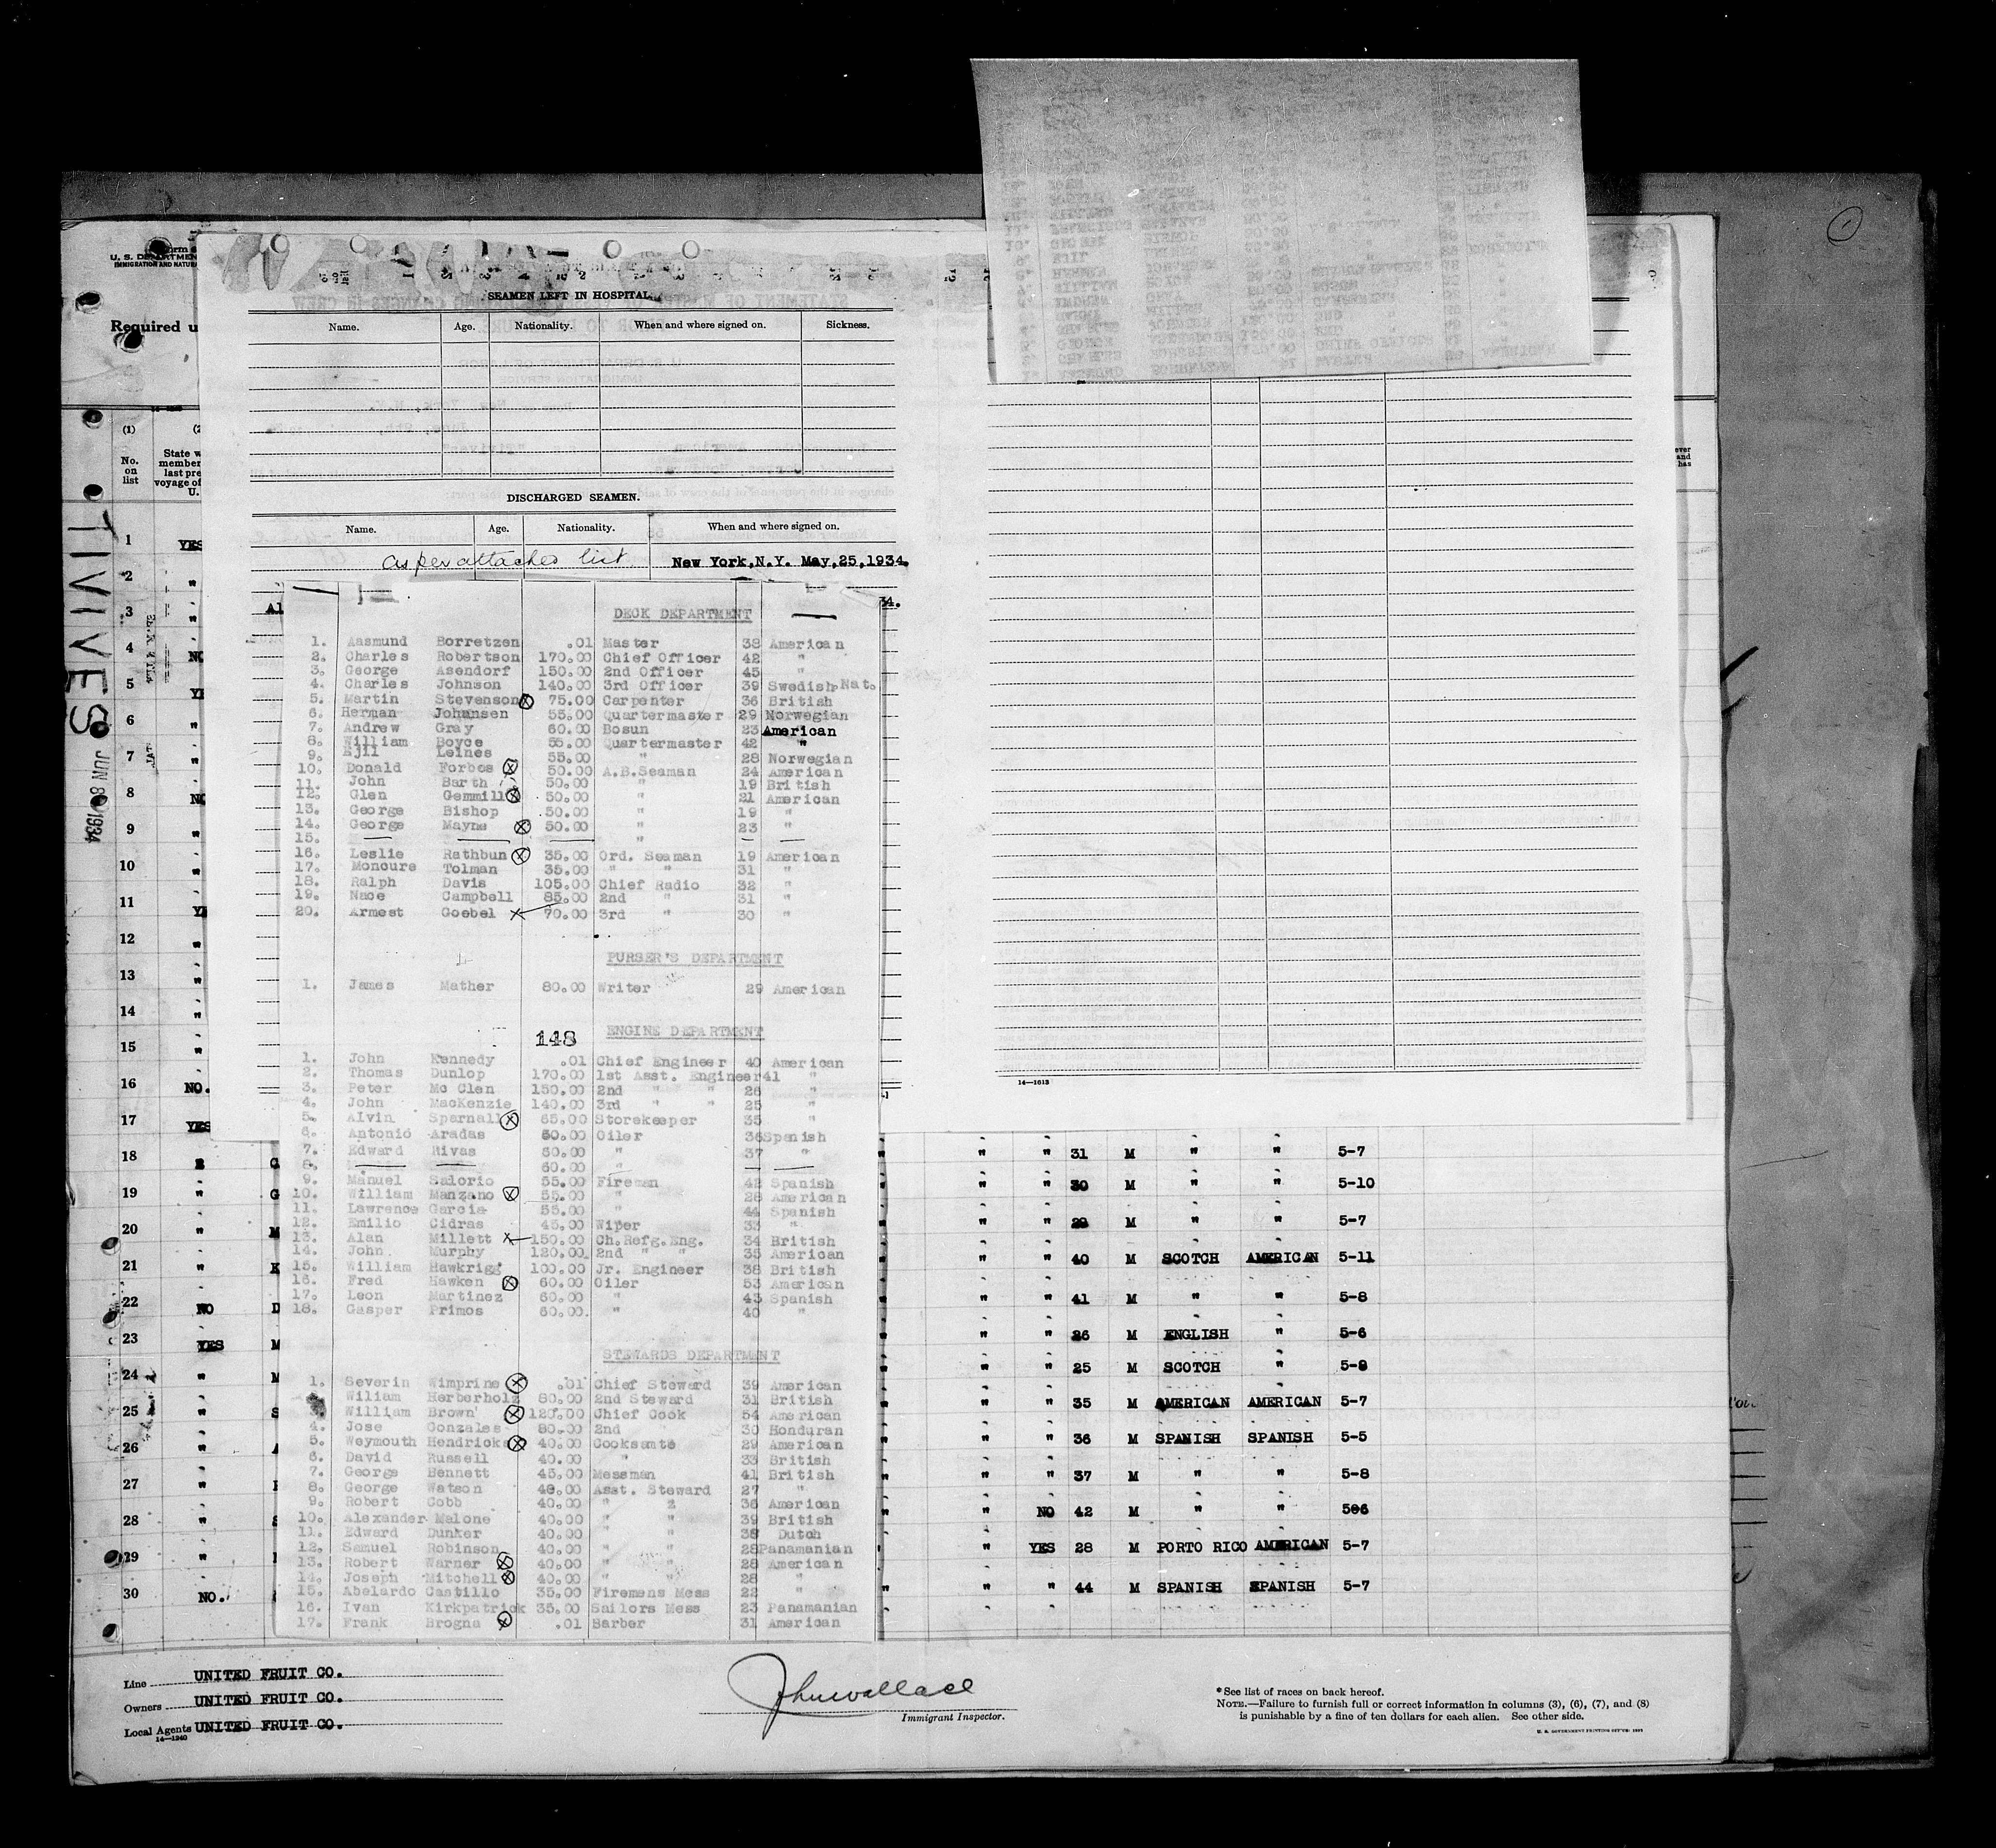 SEAMEN LEFT IN HOSPITAL.
Name. Age. Nationality. When and where signed on. Sickness.
DISCHARGED SEAMEN.
Name. Age. Nationality. When and where signed on.
as per attached list New York,N.Y. May,25,1934.
DECK DEPARTMENT
1. Aasmund Borretzen .01 Master 38 American
2. Charles Robertson 170.00 Chief Officer 42 "
3. George Asendorf 150.00 2nd Officer 45 "
4. Charles Johnson 140.00 3rd Officer 39 Swedish Nat.
5. Martin Stevenson 75.00 Carpenter 36 British
6. Herman Johansen 55.00 Quartermaster 29 Norwegian
7. Andrew Gray 60.00 Bosun 23 American
8. William Boyce 55.00 Quartermaster 42 "
9. Ejil Leines 55.00 " 28 Norwegian
10. Donald Forbes 50.00 A.B.Seaman 24 American
11. John Barth 50.00 " 19 British
12. Glen Gemmill 50.00 " 21 American
13. George Bishop 50.00 " 19 "
14. George Mayne 50.00 " 23 "
15. "
16. Leslie Rathbun 35.00 Ord. Seaman 19 American
17. Moncure Tolman 35.00 " " 31 "
18. Ralph Davis 105.00 Chief Radio 32 "
19. Nace Campbell 85.00 2nd " 31 "
20. Armest Goebel 70.00 3rd " 30 "
PURSER'S DEPARTMENT
1. James Mather 80.00 Writer 29 American
148 ENGINE DEPARTMENT
1. John Kennedy .01 Chief Engineer 40 American
2. Thomas Dunlop 170.00 1st Asst. Engineer 41 "
3. Peter Mc Clen 150.00 2nd " " 26 "
4. John MacKenzie 140.00 3rd " " 25 "
5. Alvin Sparnall 65.00 Storekeeper 35 "
6. Antonio Aradas 60.00 Oiler 36 Spanish
7. Edward Rivas 60.00 " 37 "
8. 60.00 "
9. Manuel Salorio 55.00 Fireman 42 Spanish
10. William Manzano 55.00 " 28 American
11. Lawrence Garcia 55.00 " 44 Spanish
12. Emilio Cidras 45.00 Wiper 33 "
13. Alan Millett 150.00 Ch.Refg.Eng. 34 British
14. John Murphy 120.00 2nd " " 35 American
15. William Hawkrigg 100.00 Jr. Engineer 38 British
16. Fred Hawken 60.00 Oiler 53 American
17. Leon Martinez 60.00 " 43 Spanish
18. Gasper Primos 60.00 " 40 "
STEWARDS DEPARTMENT
1. Severin Wimprine .01 Chief Steward 39 American
Wiliam Herberholz 80.00 2nd Steward 31 British
William Brown 120.00 Chief Cook 54 American
4. Jose Gonzales 80.00 2nd 30 Honduran
5. Weymouth Hendricks 40.00 Cooksmate 29 American
6. David Russell 40.00 " 33 British
7. George Bennett 45.00 Messman 41 British
8. George Watson 40.00 Asst. Steward 27 "
9. Robert Cobb 40.00 " 36 American
10. Alexander Malone 40.00 " " 39 British
11. Edward Dunker 40.00 " " 38 Dutch
12. Samuel Robinson 40.00 " " 28 Panamanian
13. Robert Warner 40.00 " " 28 American
14. Joseph Mitchell 40.00 " " 28 "
15. Abelardo Castillo 35.00 Firemens Mess 22 "
16. Ivan Kirkpatrick 35.00 Sailors Mess 23 Panamanian
17. Frank Brogna .01 Barber 31 American
14—1613
Required u
(1)
No. on list
State w
member
last pre
voyage of
U.
TIVIVES
JUN 8 1934
1 YES
2 "
3 "
4 NO
5 YE
6 "
7 "
8 NO
9 "
10 "
11 YE
12 "
13 "
14 "
15 "
16 NO.
17 YES
18 " " " 31 M " " 5-7
19 " G " " 30 M " " 5-10
20 " M " " 29 M " " 5-7
21 " K " " 40 M SCOTCH AMERICAN 5-11
22 NO D " " 41 M " " 5-8
23 YES M " " 26 M ENGLISH " 5-6
24 " M " " 25 M SCOTCH " 5-9
25 " S " " 35 M AMERICAN AMERICAN 5-7
26 " " " 36 M SPANISH SPANISH 5-5
27 " " " 37 M " " 5-8
28 " " NO 42 M " " 506
29 " " YES 28 M PORTO RICO AMERICAN 5-7
30 NO. " " 44 M SPANISH SPANISH 5-7
Line UNITED FRUIT CO.
Owners UNITED FRUIT CO.
Local Agents UNITED FRUIT CO.
14—1240
John Wallace
Immigrant Inspector.
*See list of races on back hereof.
NOTE.—Failure to furnish full or correct information in columns (3), (6), (7), and (8)
is punishable by a fine of ten dollars for each alien. See other side.